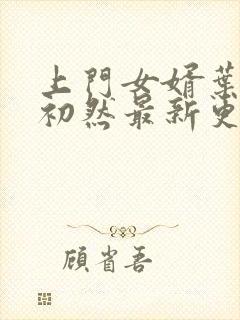 上門女婿葉
初然最新更
顧省吾